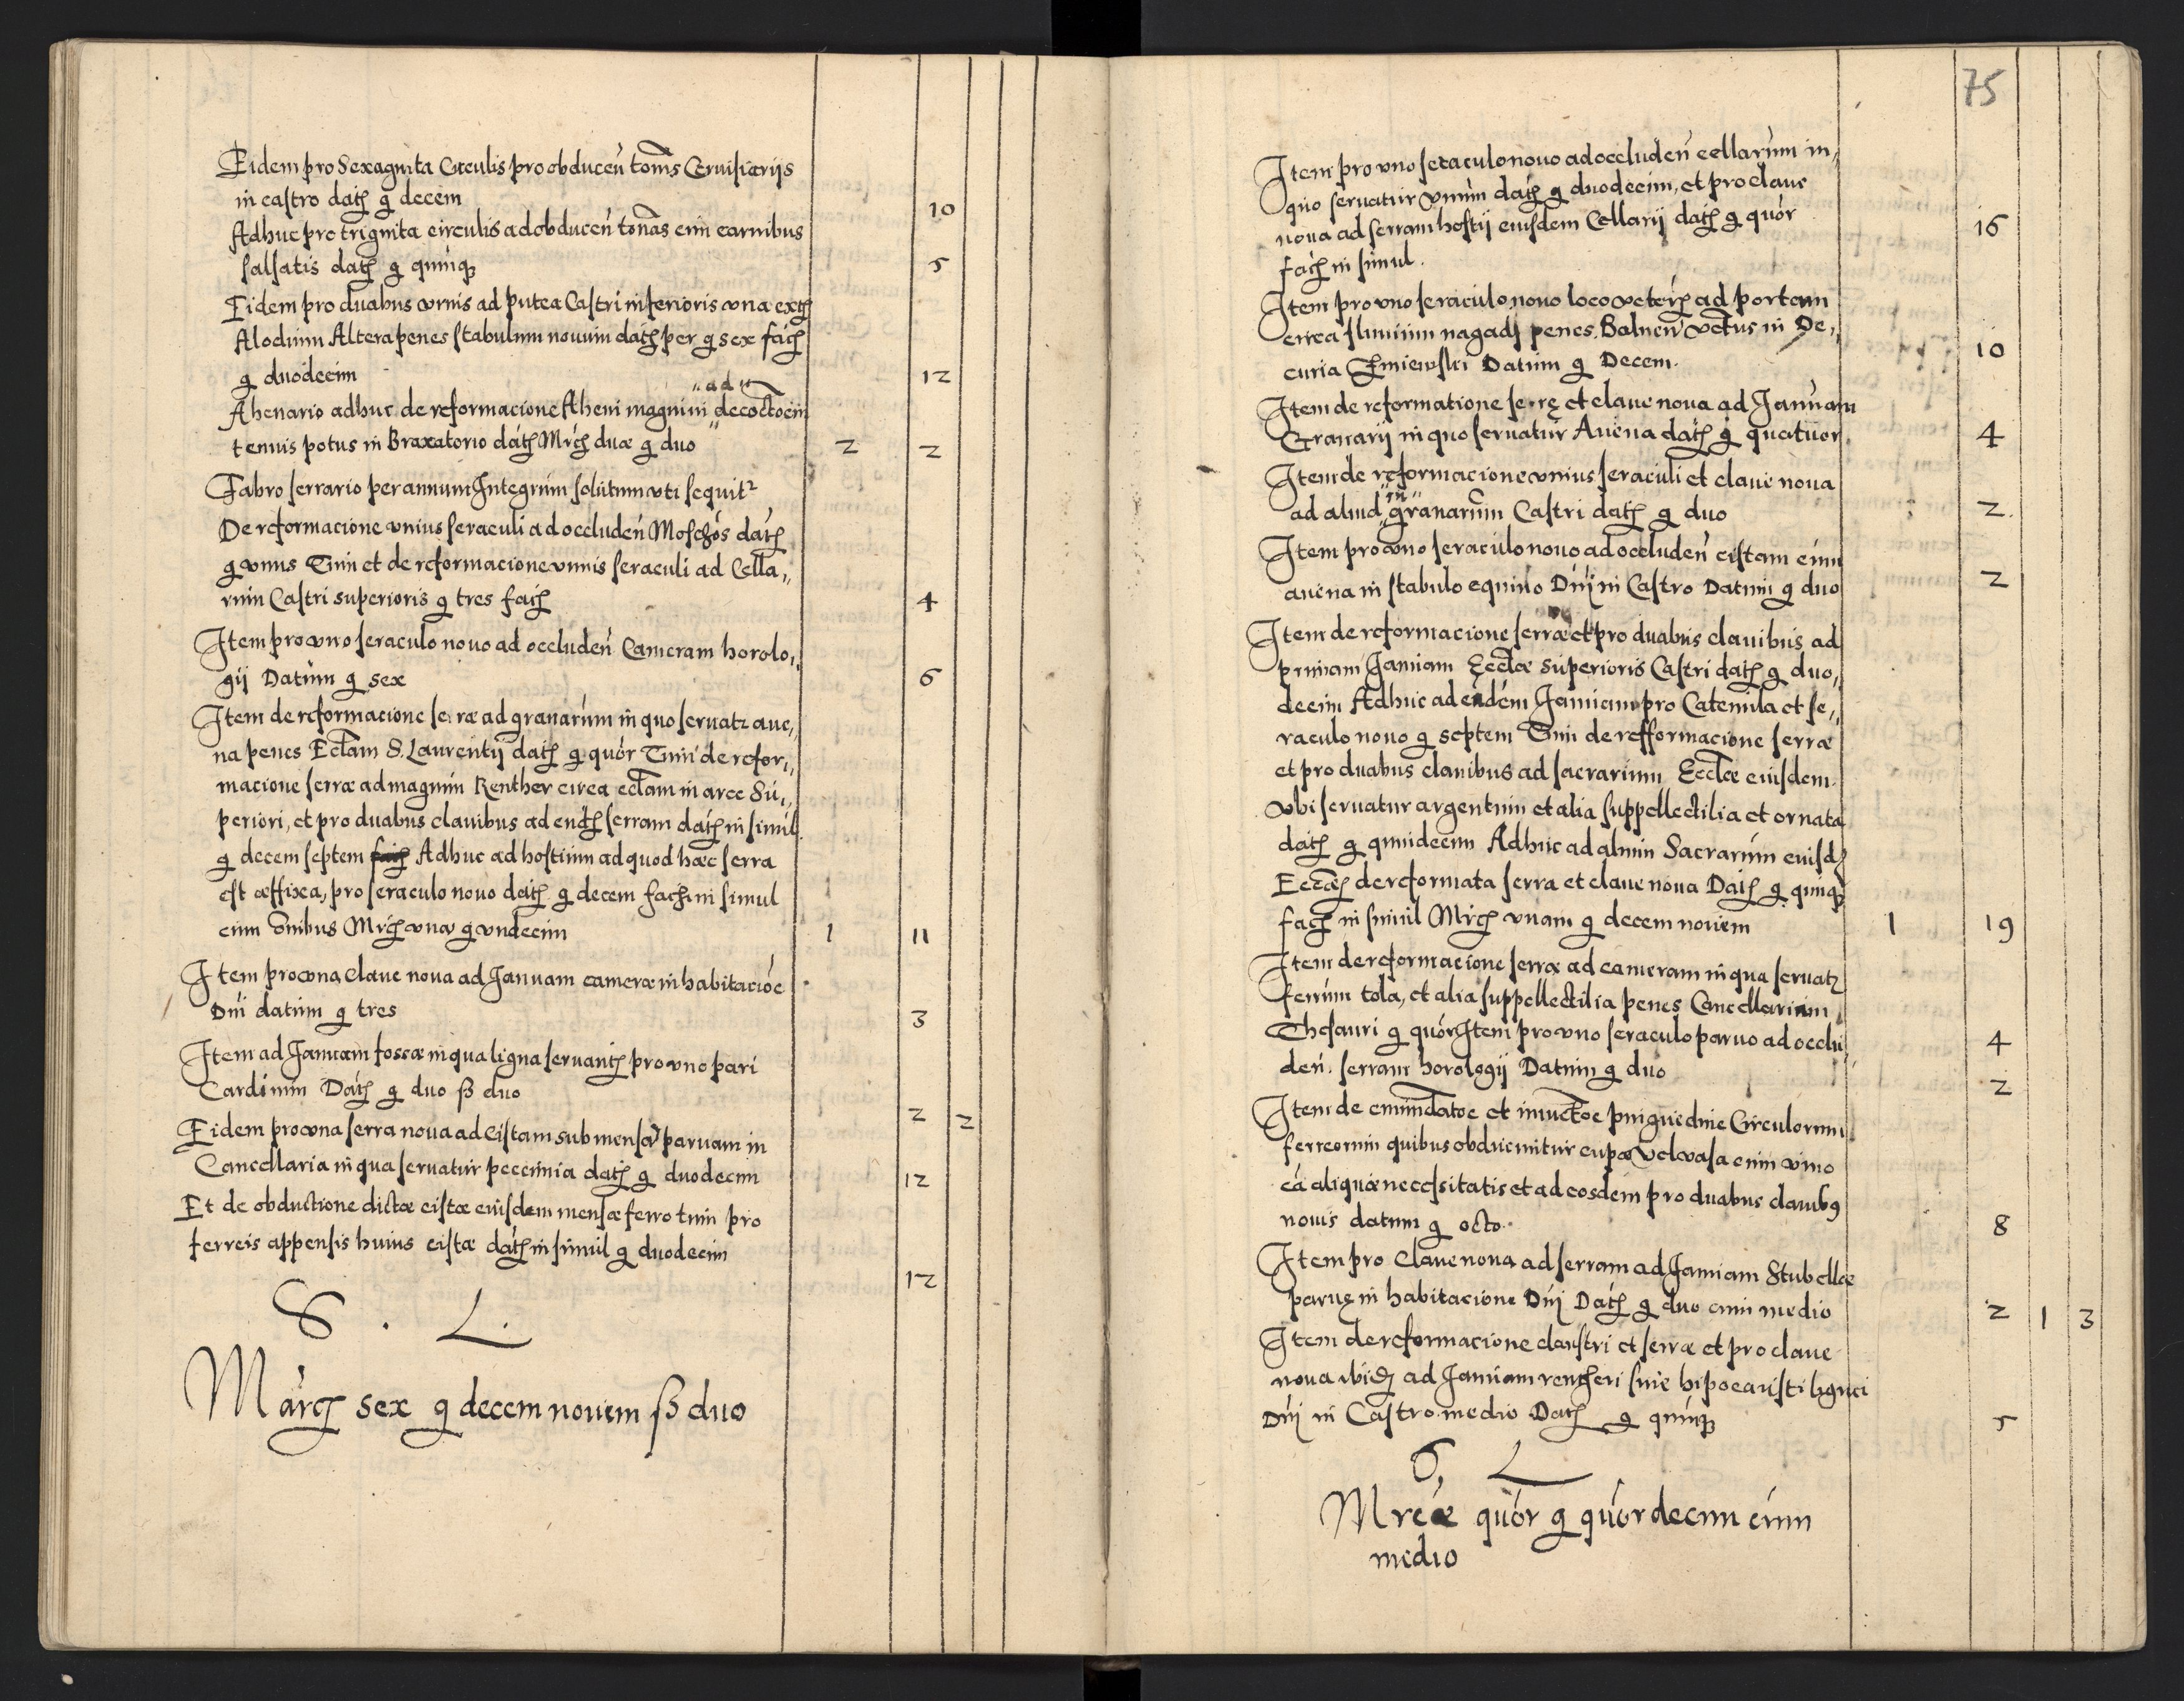 Eidem pro Sexaginta Circulis pro obducen̄ tonnis Cervisiarijs
in castro datʒ g decem 10
Adhuc pro triginta circulis ad obducen̄ tonnas cum carnibus
salsatis datʒ g quinqʒ 5
Eidem pro duabus urnis ad putea Castri inferioris una extʒ
Alodium Altera penes stabulum novum datʒ per g sex facʒ
g duodecim 12
Ahenario adhuc de reformacione Aheni magnivi " ad " decoctoem
tenuis potus in Braxatorio datʒ Mrcʒ duæ g duo 2 2
Fabro serrario per annum Integrum solutum uti sequitr
De reformacione unius seraculi ad occluden̄ Moschos datʒ
g unus Tum et de reformacione unius seraculi ad Cella„
rium Castri superioris g tres facʒ 4
Item pro uno seraculo novo ad occluden̄ Cameram horolo„
gij Datum g sex 6
Item de reformacione serræ ad granarium in quo servatr ave„
na penes Ecclam S. Laurentij datʒ g quor Tum de refor„
macione serræ ad magnum Kenther circa ecclam in arce Su„
periori, et pro duabus clavibus ad endʒ serram datʒ in simul
g decem septem facʒ Adhuc ad hostium ad quod hæc serra
est affixa, pro seraculo novo datʒ g decem facʒ in simul
cum omnibus Mrcʒ una g undecim 1 11
Item pro una clave nova ad Januam cameræ in habitacioe
Dni datum g tres 3
Item ad Januam fossæ in qua ligna servantʒ pro uno pari
Cardinum Datʒ g duo ß duo 2 2
Eidem pro una serra nova ad Cistam sub mensa parvam in
Cancellaria in qua servatur peccunia datʒ g duodecim 12
Et de obductione dictæ cistæ eiusdem mensæ ferro tum pro
ferreis appensis huius cistæ datʒ in simul g duodecim 12
S . L .
Marcʒ sex g decem novem ß duo
75
Item pro uno seraculo novo ad occluden̄ cellarium in„
quo servatur vinum datʒ g duodecim, et pro clave
nova ad serram hostij eiusdem Cellarij datʒ g quor 16
facʒ in simul.
Item pro uno seraculo novo loco veterʒ ad portam
circa flumium nagadʒ penes Balneū vetus in De„
curia Zmiewski Datum g Decem. 10
Item de reformatione serrę et clave nova ad Januam
Granarij in quo servatur Avena datʒ g quatuor 4
Item de reformacione unius seraculi et clave nova
ad aliud granarium Castri datʒ g duo 2
Item pro uno seraculo novo ad occluden̄ cistam cum
avena in stabulo equino Dni in Castro Datum g duo 2
Item de reformacione serræ et pro duabus clavibus ad
primam Januam Ecclæ superioris Castri datʒ g duo„
decim Adhuc ad eandem Januam pro Catenula et se„
raculo novo g septem Tum de refformacione serræ
et pro duabus clavibus ad sacrarium Ecclæ eiusdem.
ubi servatur argentum et alia suppellectilia et ornata
datʒ g quindecim Adhuc ad alium Sacrarium eiusdʒ
Ecclæ de reformata serra et clave nova Datʒ g quinqʒ
facʒ in simul Mrcʒ unam g decem novem 1 19
Item de reformacione serræ ad cameram in qua servatʒ
ferrum tola, et alia suppellectilia penes Cancellariam
Thesauri g quor Item pro uno seraculo parvo ad occlu„ 4
den̄. serram horologij Datum g duo 2
Item de emundatoe et inuctoe pinguedine Circulorum
ferreorum quibus obducuntur cupæ vel vasa cum vino
cā aliquæ necessitatis et ad eosdem pro duabus clavibʒ
novis datum g octo. 8
Item pro Clave nova ad serram ad Januam Stubellæ
parvę in habitacione Dnj Datʒ g duo cum medio 2 1 3
Item de reformacione claustri et serræ et pro clave
nova ibidʒ ad Januam rentheri sive hipocausti lignei
Dnj in Castro medio Datʒ g quinqʒ 5
S, L
Mrcæ quor g quordecim cum
medio